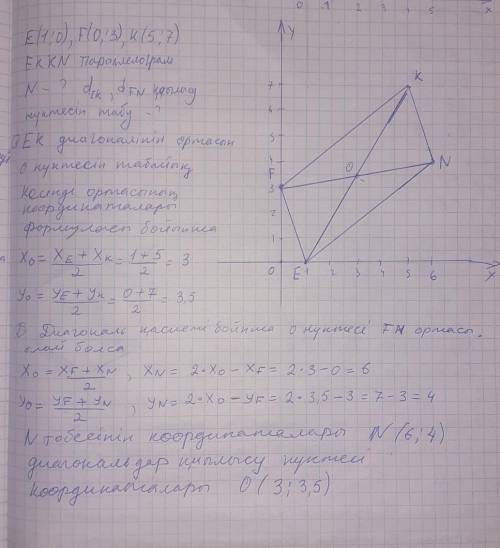 E(1;0), F(0;3), K(5;7)
EKKN параллелограм
N - ? dEK, dFN қиылысу
нүктесін табу - ?
EK диагоналінің ортасын
O нүктесін табайық
Кесінді ортасының
координаталары
формуласы бойынша
X₀ = (X_E + X_K)/2 = (1+5)/2 = 3
y₀ = (y_E + y_K)/2 = (0+7)/2 = 3,5
Диагональ қасиеті бойнша O нүктесі FN ортасы.
болса
X₀ = (X_F + X_N)/2, X_N = 2·X₀ - X_F = 2·3-0 = 6
y₀ = (y_F + y_N)/2, y_N = 2·X₀ - y_F = 2·3,5-3 = 7-3 = 4
N төбесінің координаталары N(6;4)
диагональдар қиылысу нүктесі
координаталары O(3;3,5)
0 1 2 3 4 5 X
y
K
7
6
5
4 N
F 3 O
2
1
0 E 1 2 3 4 5 6 X